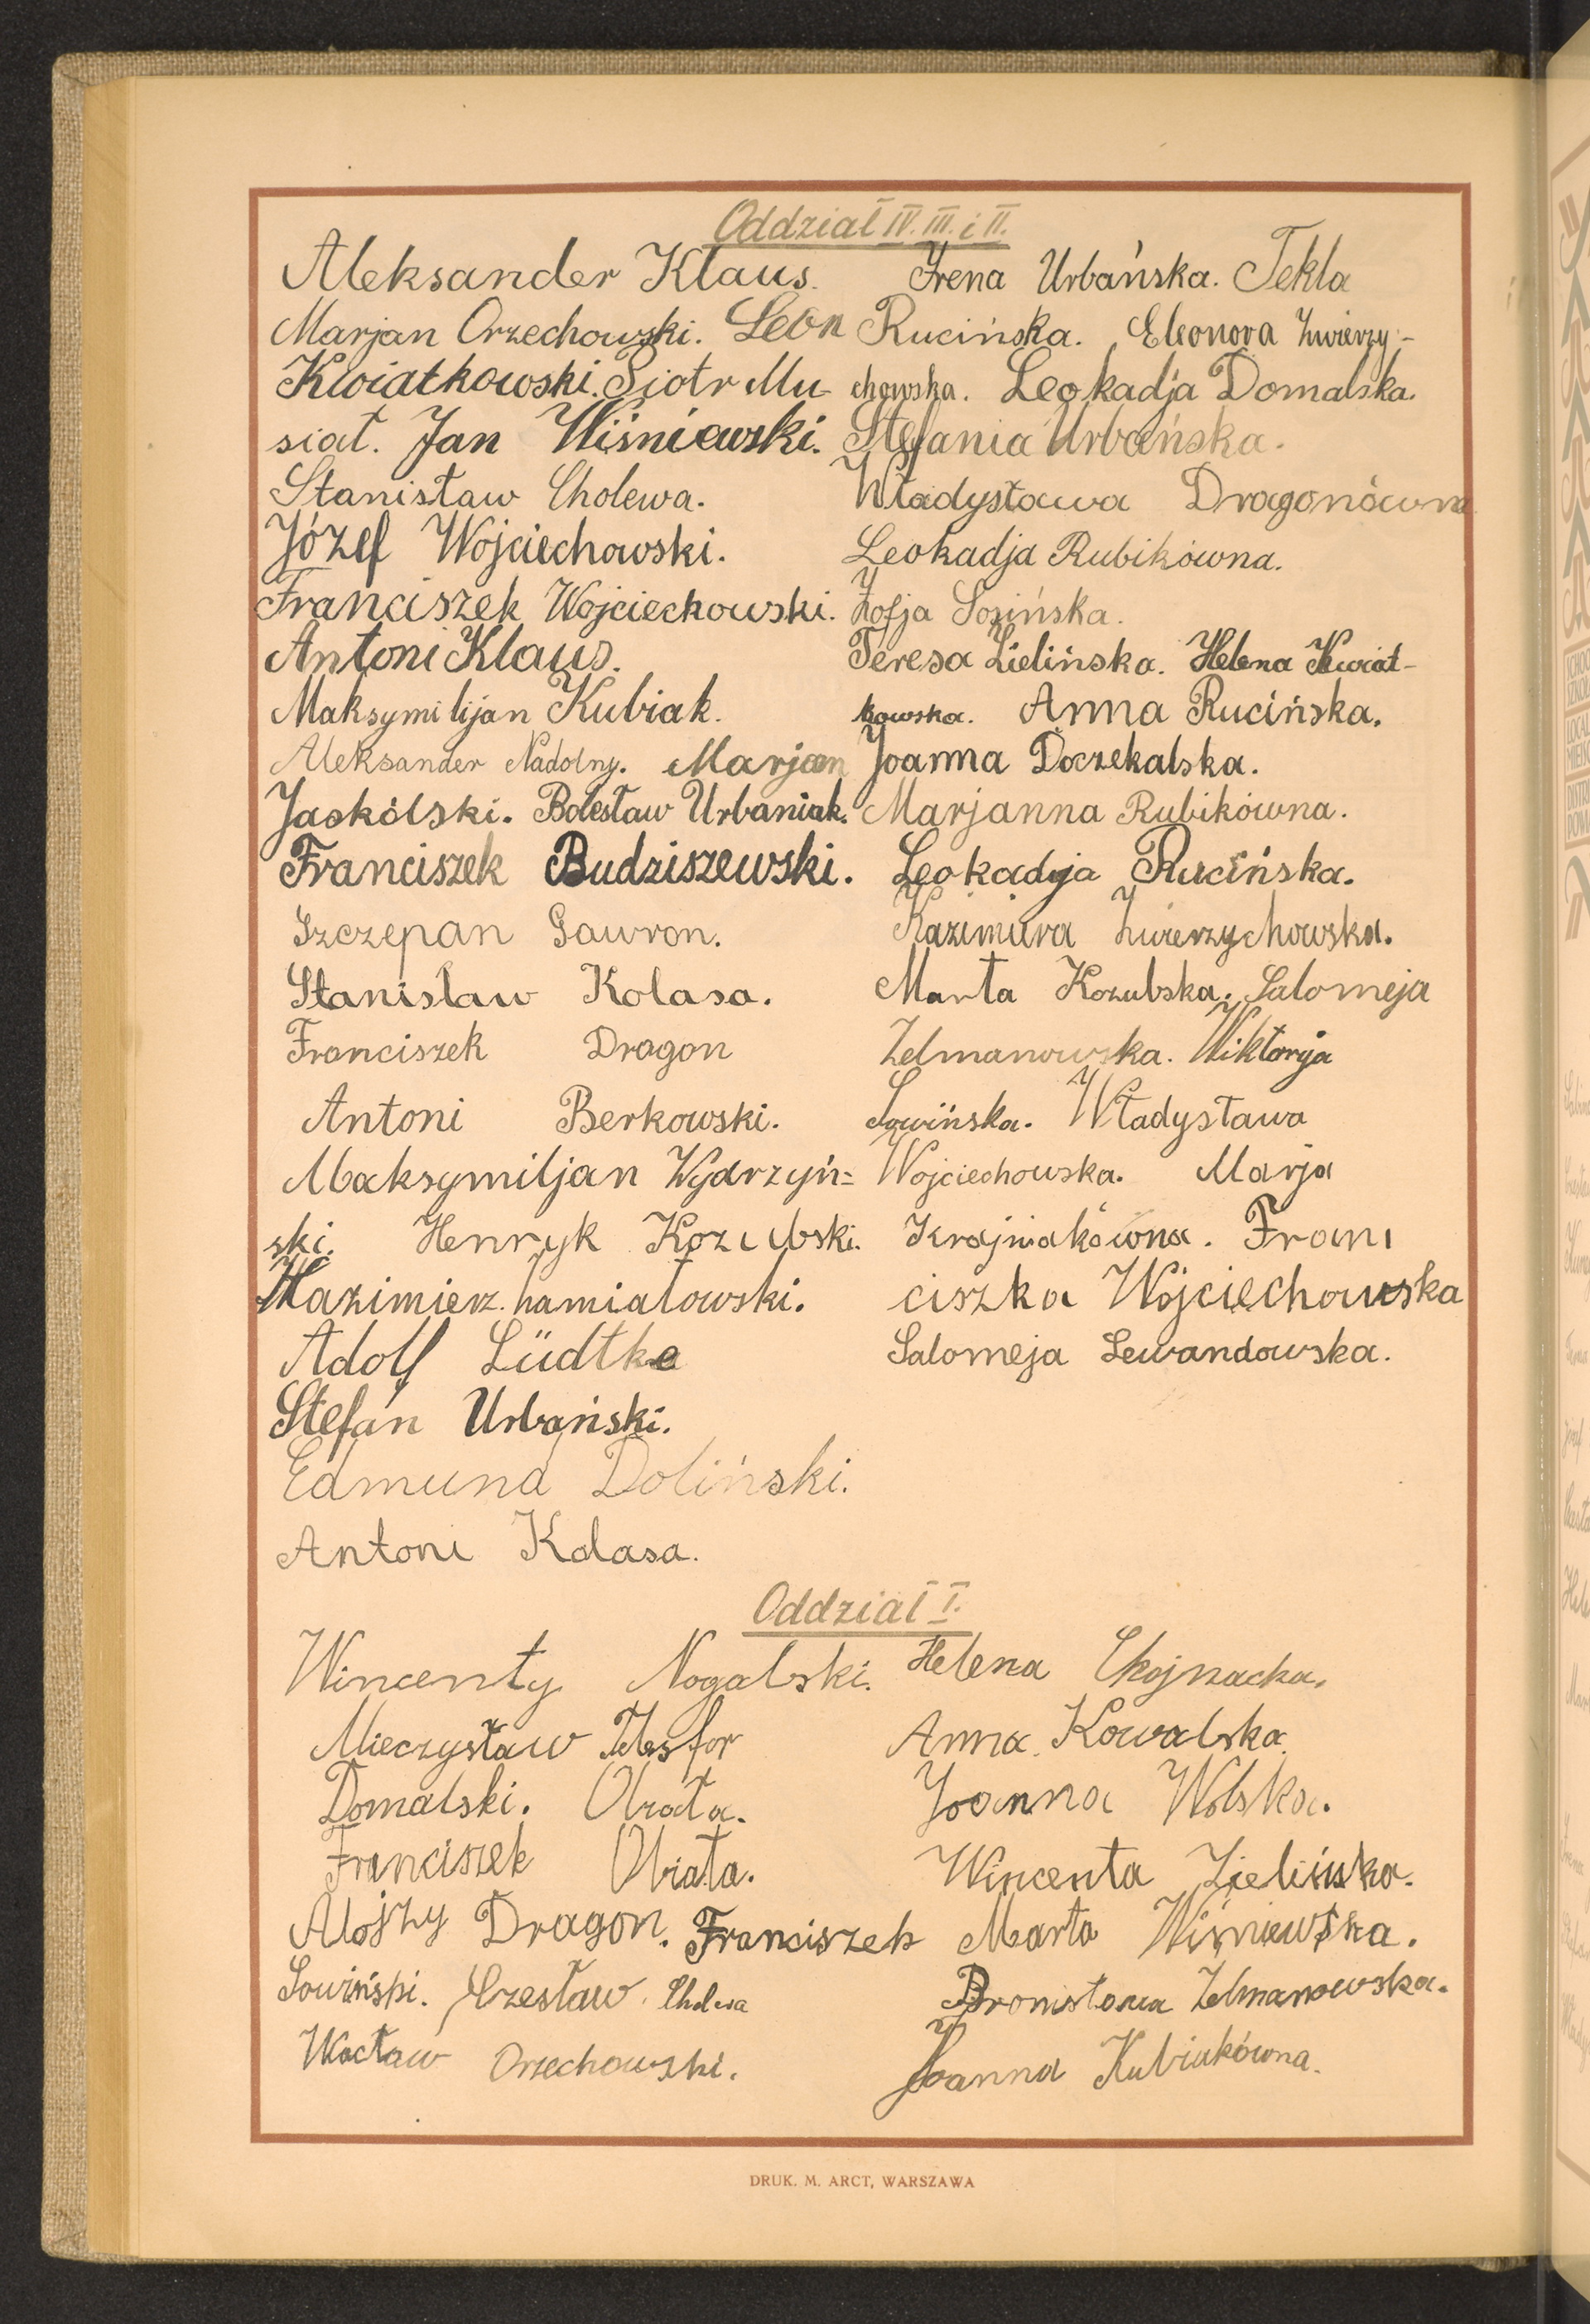 Oddział IV. III. i II.
Aleksander Klaus.
Marjan Orzechowski. Leon
Kwiatkowski. Piotr Mu-
siat. Jan Wiśniewski.
Stanisław Cholewa.
Józef Wojciechowski.
Franciszek Wojciechowski.
Antoni Klaus.
Maksymilijan Kubiak.
Aleksander Nadolny. Marjan
Jaskólski. Bolesław Urbaniak.
Franciszek Budziszewski.
Szczepan Gawron.
Stanisław Kolasa.
Franciszek Dragon
Antoni Berkowski.
Maksymiljan Wydrzyń=
ski. Henryk Kozubski.
Kazimierz. hamiatowski.
Adolf Lüdtke
Stefan Urbański.
Edmund Doliński.
Antoni Kolasa.
Irena Urbańska. Tekla
Rucińska. Eleonora Zwierzy-
chowska. Leokadja Domalska.
Stefania Urbańska.
Władysława Dragonówna
Leokadja Rubikówna.
Zofja Sosińska.
Teresa Zielińska. Helena Kwiat-
kowska. Anna Rucińska.
Joanna Doczekalska.
Marjanna Rubikówna.
Leokadyja Rucińska.
Kazimiera Zwierzychowska.
Marta Kozubska. Salomeja
Zelmanowska. Wiktorja
Sowińska. Władysława
Wojciechowska. Marja
Krajniakówna. Fran
ciszka Wojciechowska
Salomeja Lewandowska.
Oddział I.
Wincenty Nogalski.
Mieczysław Telesfor
Domalski. Obiata.
Franciszek Obiata.
Alojzy Dragon. Franciszek
Sowiński. Czesław Cholewa
Wacław Orzechowski.
Helena Chojnacka.
Anna Kowalska.
Joanna Wolska.
Wincenta Zielińska.
Marta Wiśniewska.
Bronisława Zelmanowska.
Joanna Kubiakówna.
DRUK. M. ARCT, WARSZAWA